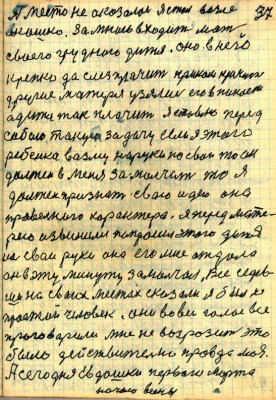 37
А место не оказалося я стал возле
окошко. За мною входит мать
своего грудного дитя. оно в него
крепко до слез плачит криком кричит
другие матеря узяли его в
а дитя так плачит Я ставлю перед
собою такую задачу если я этого
ребенка возму на руки по своя то он
должен в меня замолчать то Я
должен признать свою идею она
правелного характера. Я перед мате-
рею извинился попросил этого дитя
на свои руки она его мне отдала
он в эту минуту замолчал, Все седев-
ши на своих местах сказали я был не
простой человек. они во вес голос все
проговорили мне не возрозит это
было действительно правда моя.
А сегодня первого марта
начало весны